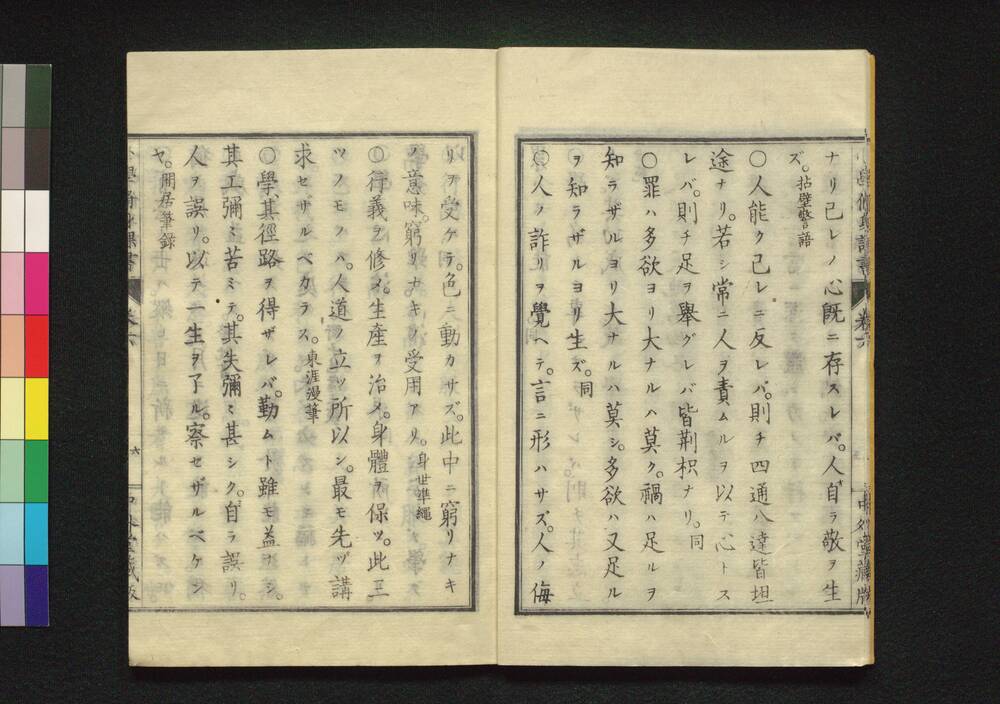 ナリ己レノ心既ニ存スレバ。人自ラ敬ヲ生
ズ。拈壁警語
〇人能ク己レニ反レバ。則チ四通八達皆坦
途ナリ。若シ常ニ人ヲ責ムルヲ以テ心トス
レバ。則チ足ヲ舉グレバ皆荆枳ナリ。同
〇罪ハ多欲ヨリ大ナルハ莫ク。禍ハ足ルヲ
知ラザルヨリ大ナルハ莫シ。多欲ハ又足ル
ヲ知ラザルヨリ生ズ。同
〇人ノ詐リヲ覺ヘテ。言ニ形ハサズ。人ノ侮
リヲ受ケテ。色ニ動カサズ。此中ニ窮リナキ
ノ意味。窮リナキノ受用アリ。身世準繩
〇行義ヲ修メ。生產ヲ治メ。身體ヲ保ツ。此三
ツノモノハ。人道ノ立ツ所以シ。最モ先ヅ講
求セザルベカラス。東涯漫筆
〇學、其徑路ヲ得ザレバ。勤ムト雖モ益ナシ。
其工彌ミ苦ミテ。其失彌ミ甚シク。自ラ誤リ。
人ヲ誤リ。以テ一生ヲ了ル。察セザルベケン
ヤ。間居筆録
卷六
六